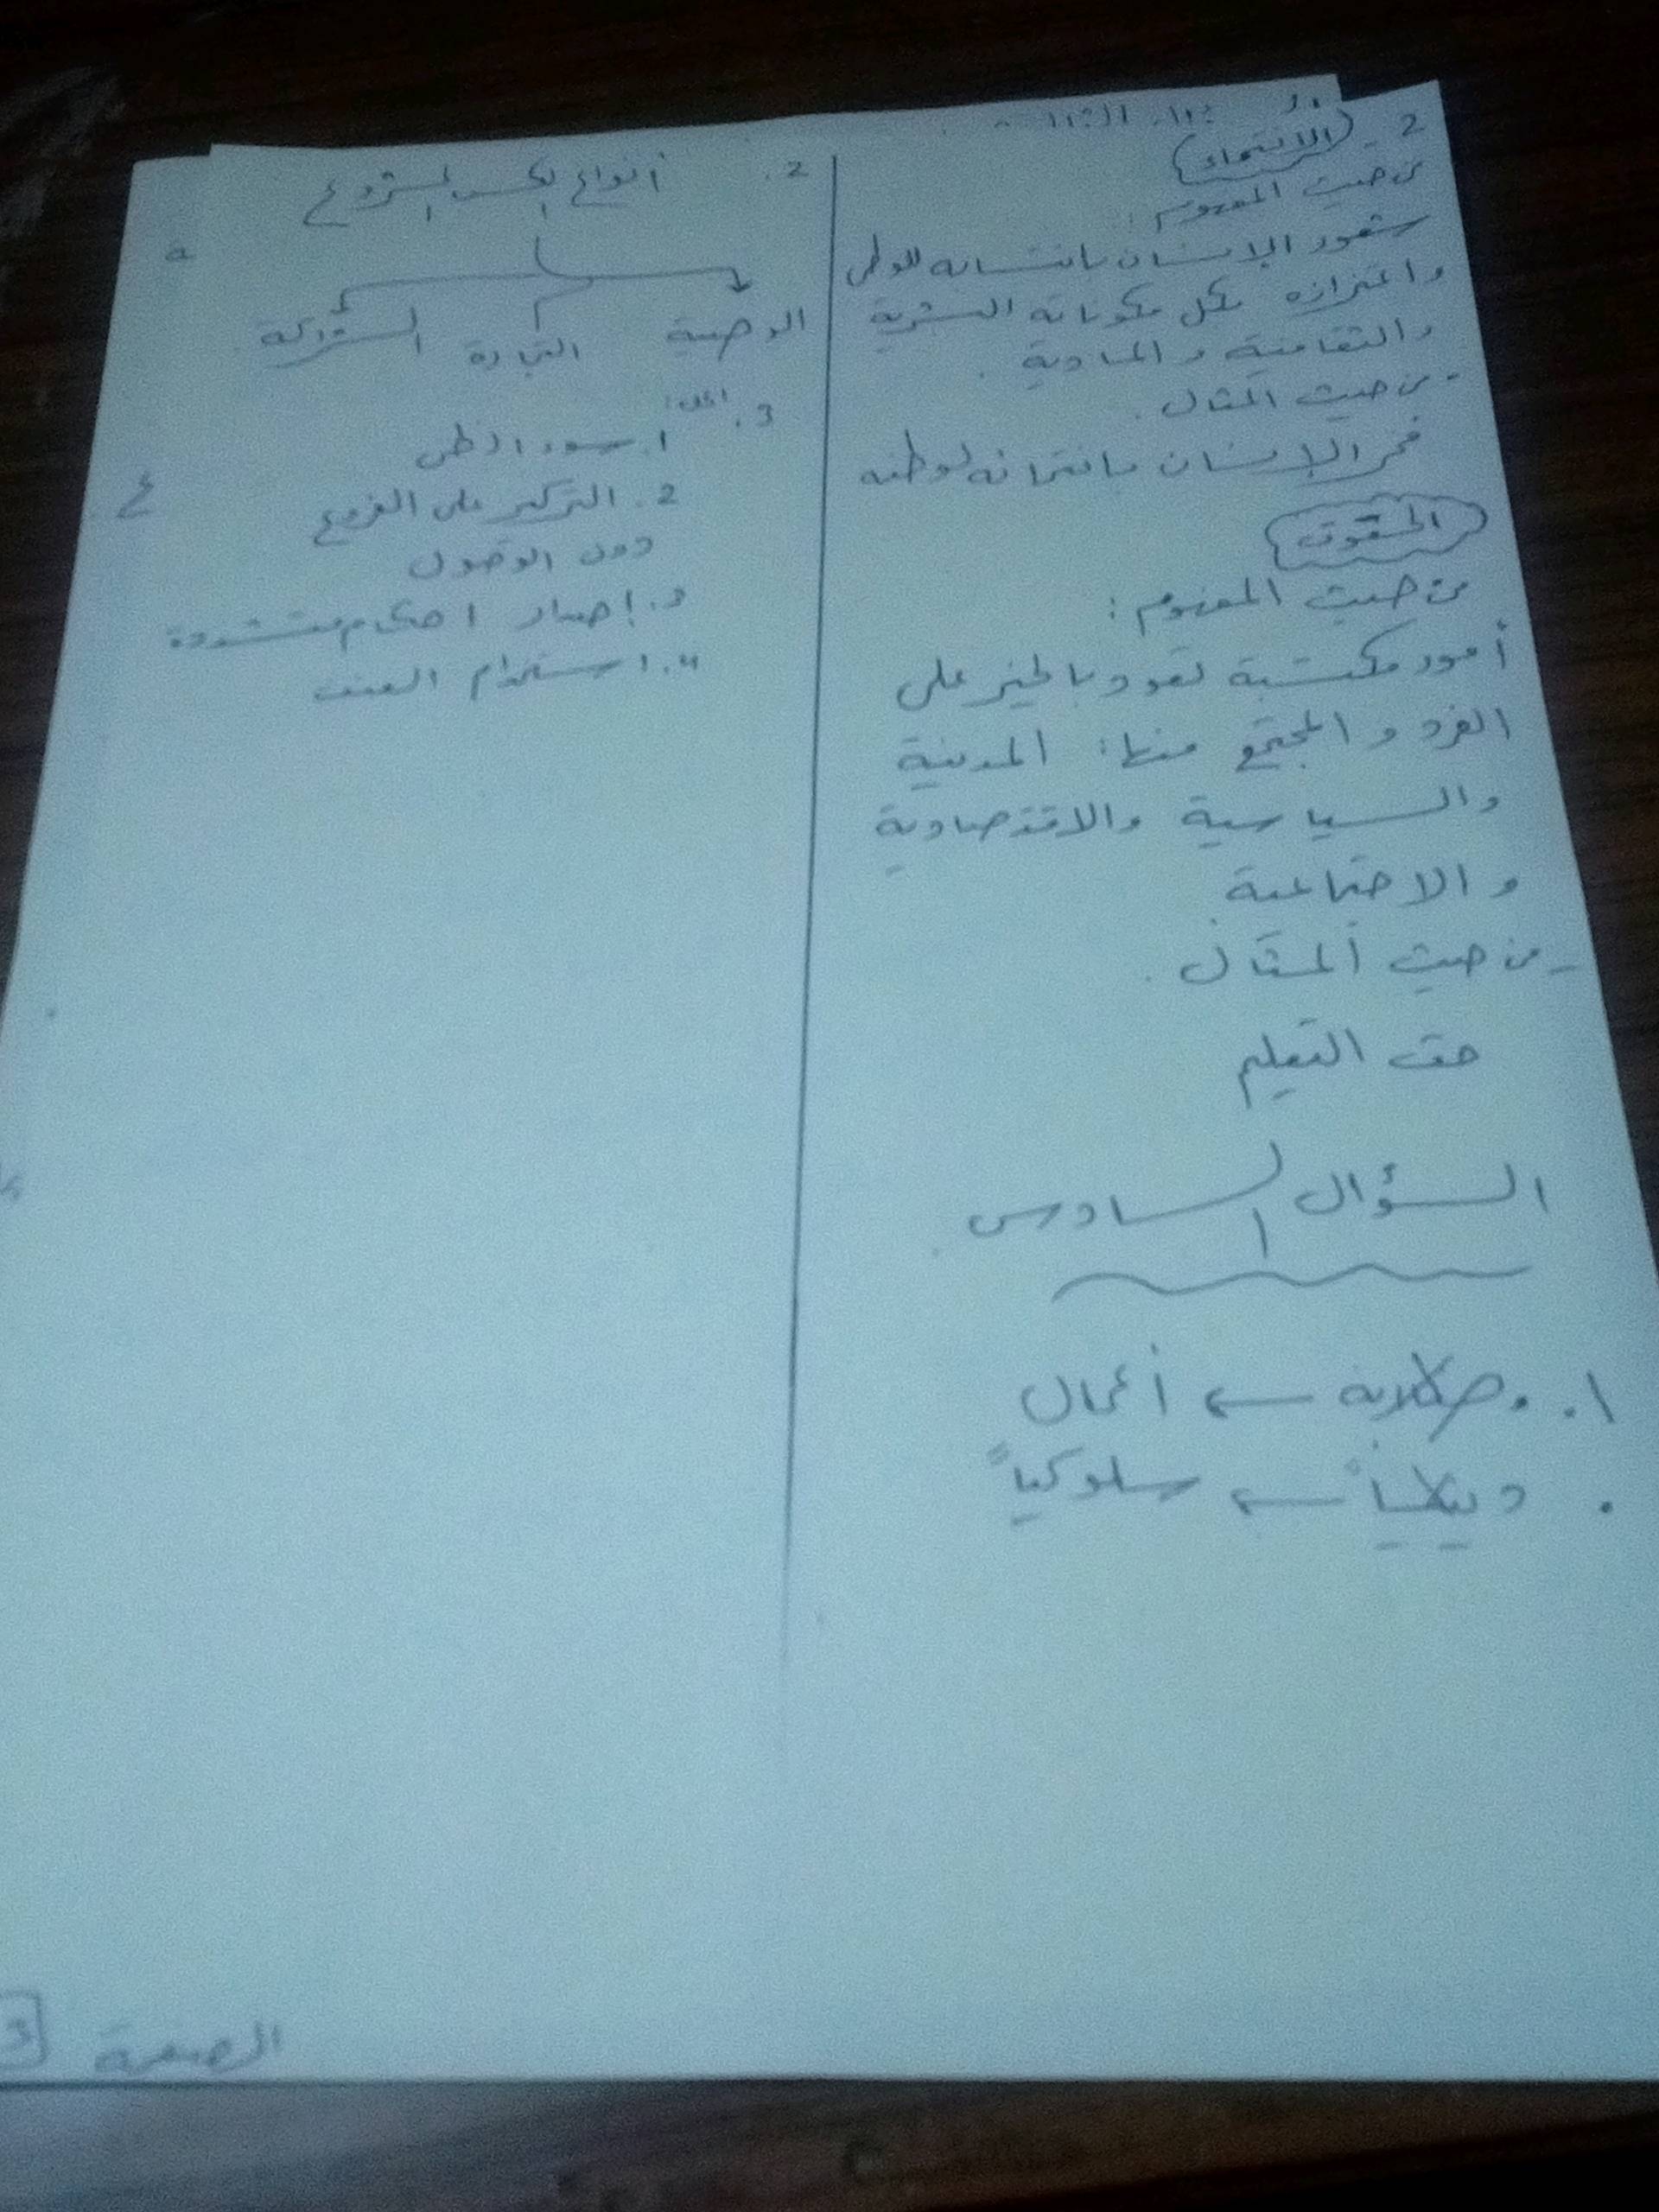 2 - الانتماء
من حيث المفهوم:
شعور الإنسان بانتسابه للوطن
واعتزازه بكل مكوناته البشرية
والثقافية والمادية.
- من حيث المثال.
فخر الإنسان بانتمائه لوطنه
الحقوق
من حيث المفهوم:
أمور مكتسبة تعود بالخير على
الفرد والمجتمع منها: المدنية
والسياسية والاقتصادية
والاجتماعية.
- من حيث المثال.
حق التعليم
السؤال السادس
1. . صلاته ← أعمال
. دينياً ← سلوكياً
2. أنواع الكسب المشروع
الوصية التجارة الشراكة
3.
1. سوء الظن
2. التركيز على الفروع
دون الوصول
3. إصدار احكام متشددة
4. استخدام العنف
الصفحة 3